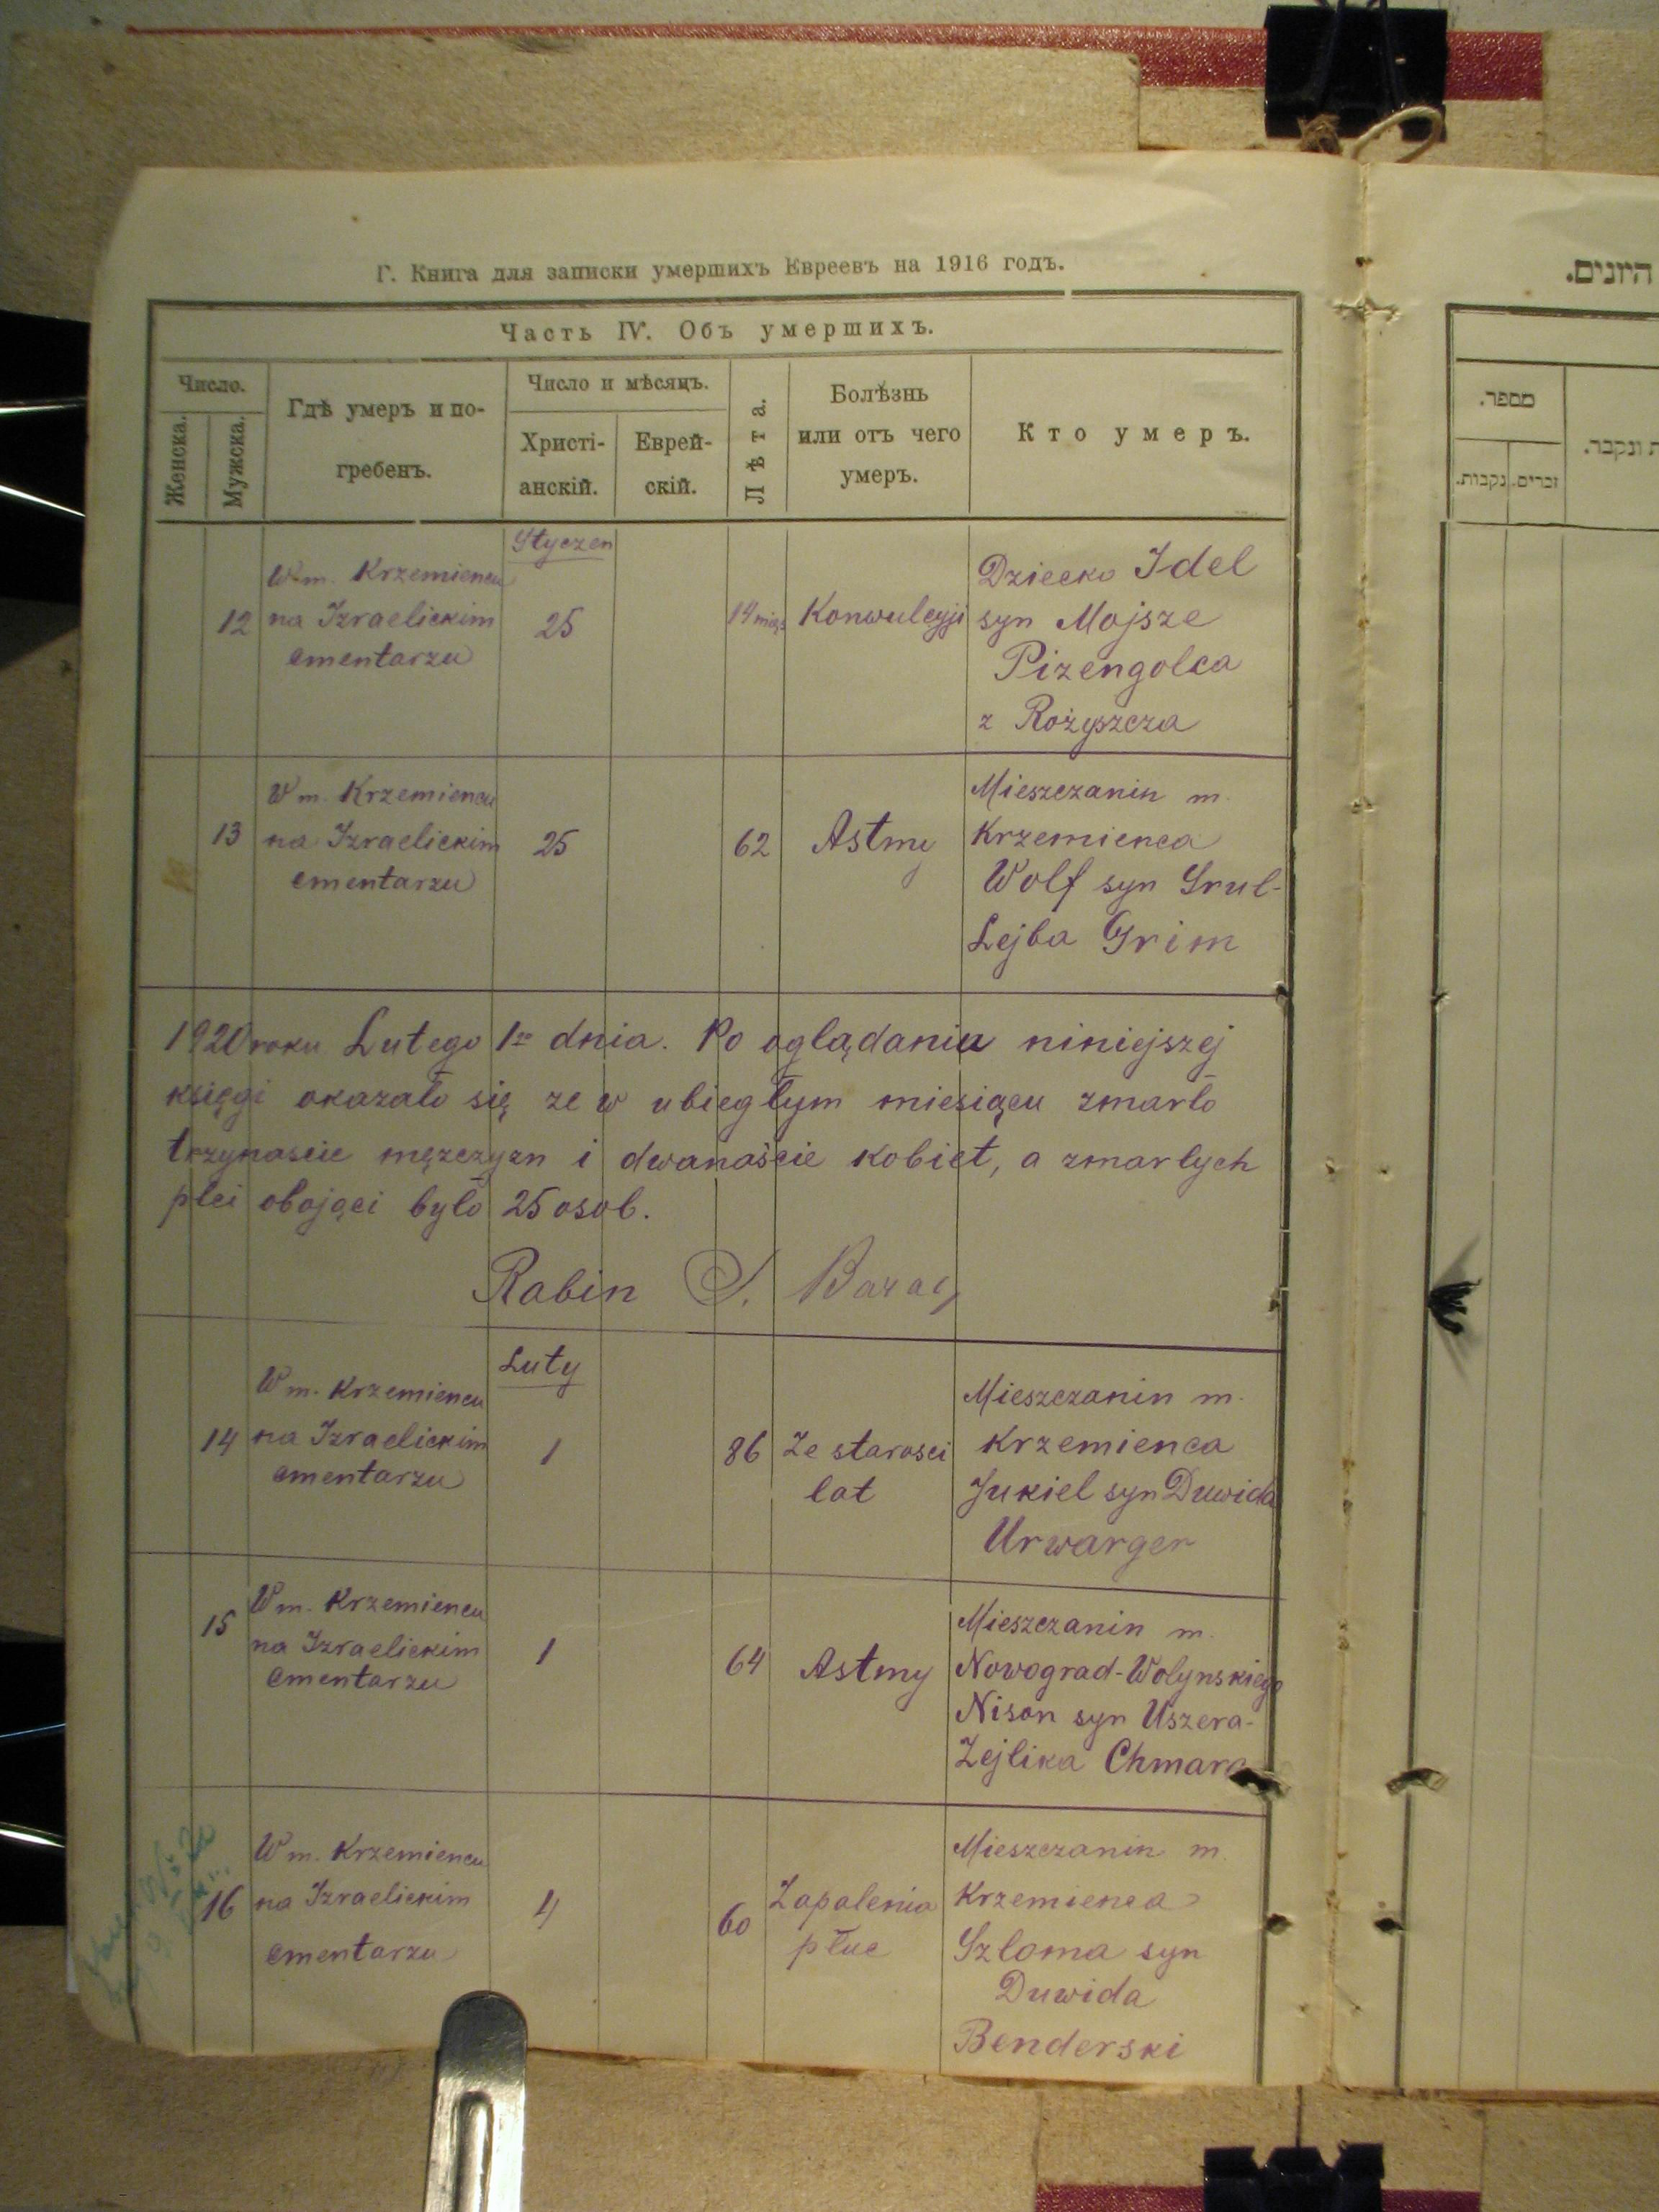 Г. Книга для записки умершихъ Евреевъ на 1916 годъ.
Часть IV. Объ умершихъ.
Число.
Женска.
Мужска.
Гдѣ умеръ и по-
гребенъ.
Число и мѣсяцъ.
Христі-
анскій.
Еврей-
скій.
Лѣта.
Болѣзнь
или отъ чего
умеръ.
Кто умеръ.
Styczen
12
W m. Krzemiencu
na Izraelickim
cmentarzu
25
14 mies
Konwulcyji
Dziecko Idel
syn Mojsze
Pizengolca
z Rożyszcza
13
W m. Krzemiencu
na Izraelickim
cmentarzu
25
62
Astmy
Mieszczanin m.
Krzemienca
Wolf syn Srul-
Lejba Grim
1920 roku Lutego 1go dnia. Po oglądaniu niniejszej
księgi okazało się ze w ubiegłym miesiącu zmarło
trzynascie męzczyzn i dwanaście kobiet, a zmarlych
plci obojęci było 25 osob.
Rabin S. Barac
Luty
14
W m. Krzemiencu
na Izraelickim
cmentarzu
1
86
Ze starosci
lat
Mieszczanin m.
Krzemienca
Jukiel syn Duwida
Urwarger
15
W m. Krzemiencu
na Izraelickim
cmentarzu
1
64
Astmy
Mieszczanin m.
Nowograd-Wolynskiego
Nison syn Uszera-
Zejlika Chmara
16
W m. Krzemiencu
na Izraelickim
cmentarzu
4
60
Zapalenia
płuc
Mieszczanin m.
Krzemienca
Szloma syn
Duwida
Benderski
היונים.
מספר.
ונקבר.
זכרים.
נקבות.